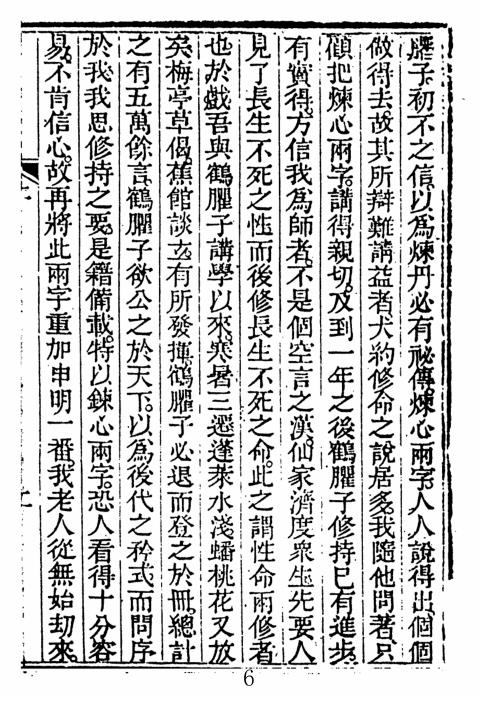 臞子初不之信。以為煉丹必有祕傳。煉心兩字。人人說得出。個個
做得去。故其所辯難請益者。大約修命之說居多。我隨他問著。只
顧把煉心兩字。講得親切。及到一年之後。鶴臞子修持已有進步。
有實得。方信我為師者。不是個空言之漢。仙家濟度眾生。先要人
見了長生不死之性。而後修長生不死之命。此之謂性命兩修者
也。於戲。吾與鶴臞子講學以來。寒暑三遷。蓬萊水淺。蟠桃花又放
矣。梅亭草偈。蕉館談玄。有所發揮。鶴臞子必退而登之於冊。總計
之有五萬餘言。鶴臞子欲公之於天下。以為後代之矜式。而問序
於我。我思修持之要。是籍備載。特以鍊心兩字。恐人看得十分容
易。不肯信心。故再將此兩字重加申明一番。我老人從無始刧來。
6